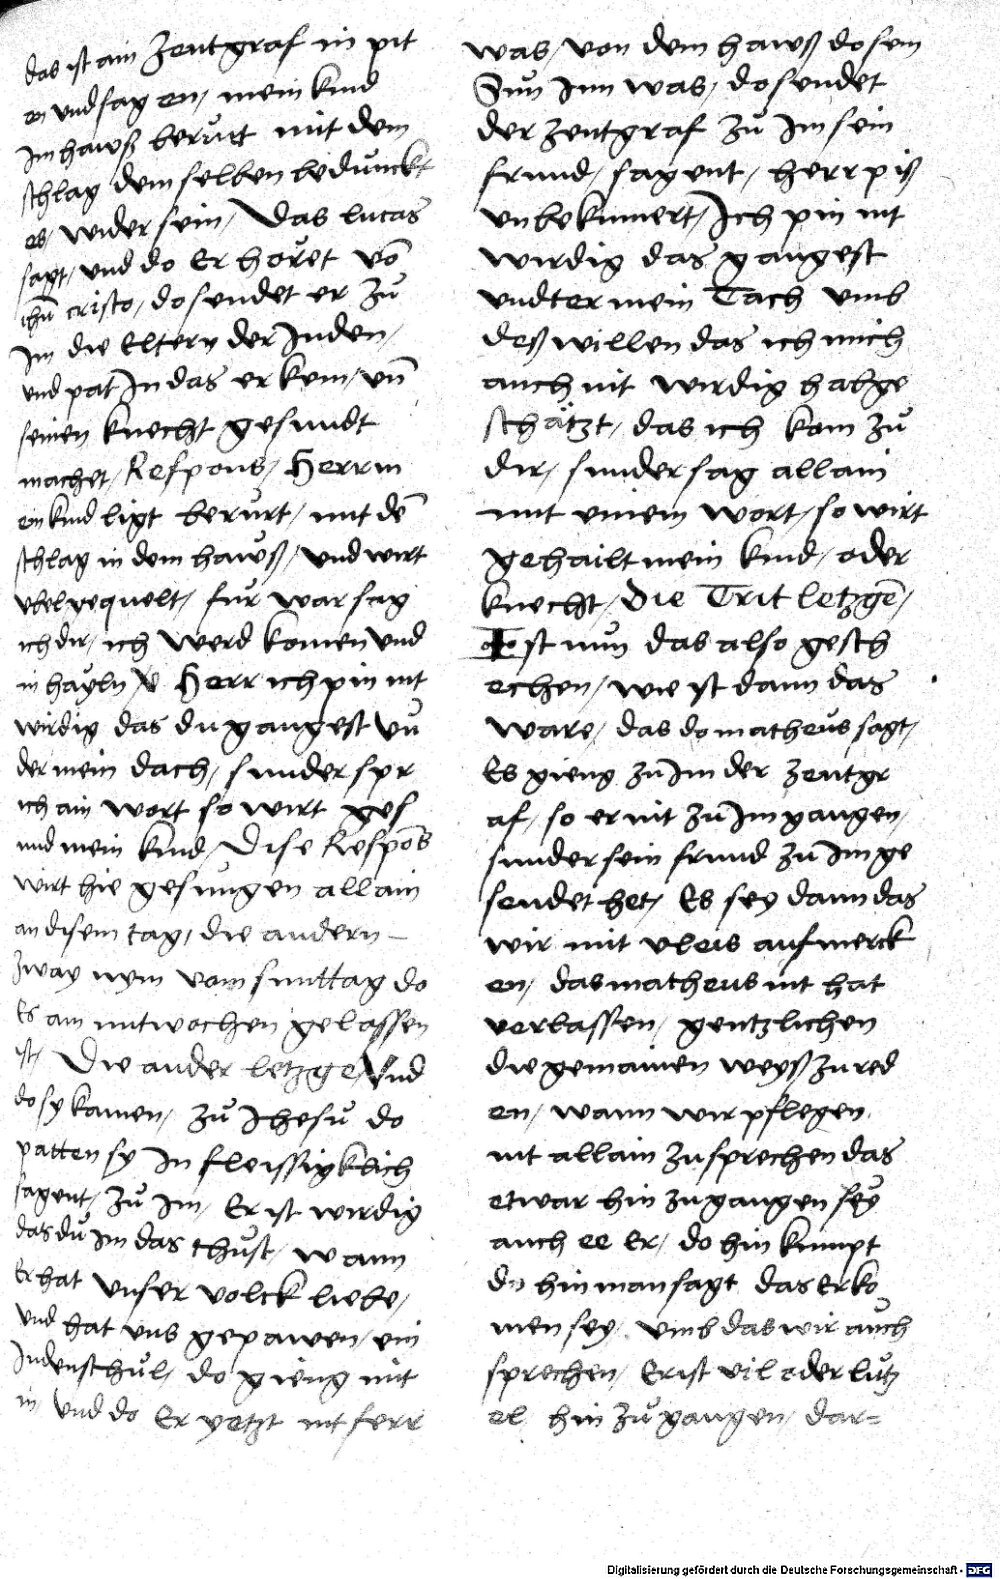 das ist ain Zentgraf in pit
en vnd sag en / mein kind
Im hawß berurt mit dem
schlag dem selben bedunckt
es / wider sein / Das lucas
sagt / vnd do Er höret vō
ihū cristo / do sendet er zů
Im die Eltern der Juden /
vnd pat In das er kem / vn̄
seinen knecht gesundt
machet / Respons / Herr m
ein kind ligt berürt / mit dē
schlag in dem hawß / vnd wirt
vbel gequelt / für war sag
ich dir / ich werd komen vnd
in hayln Herr ich pin nit
wirdig das du gangest vn̄
der mein dach / sunder spr
ich ain wort so wirt ges
und mein kind / Dise Respōs
wirt hie gesungen allain
an disem tag / die andern
zway nym vom sunttag do
Es am mitwochen gelassen
ist / Die ander letzge / Vnd
do sy kamen / zů Jhesu do
patten sy In fleissigklich
sagent / zů Im / Er ist wirdig
das dů Im das thůst / wann
Er hat vnser volck liebe /
vnd hat vns gepawen / ein
Judenschůl / do gieng mit
in vnd do Er yetzt nit ferr
was / von dem hawß do sein
Sun Inn was / do sendet
der zentgraf zů Im sein
frund / sagent / herr piß
vnbekumert / Ich pin nit
wirdig das gangest
vndter mein Tach vmb
deß willen das ich mich
auch nit wirdig hab ge
schätzt / das ich kom zů
dir / sunder sag allain
mit einem wort / so wirt
gehailt mein kind / oder
knecht / Die Trit letzgē /
So ist nun das also gesch
echen / wie yst dann das
ware / das do matheus sagt /
Es gieng zů Im der zentgr
af / so er nit zů Im gangen /
sunder sein frund zů Im ge
sendet het / Es sey dann das
wir mit vleis aufmerck
en / das matheus nit hat
verlassen / gentzlichen
die gemainen weyß zu red
en / wann wir pflegen
nit allain zu sprechen das
etwar hin zu gangen sey
auch ee Er / do hin kumpt
do hin man sagt das Er ko
men sey / vmb das wir auch
sprechen / Er ist vil oder lutz
el hin zů gangen / dar=
Digitalisierung gefördert durch die Deutsche Forschungsgemeinschaft - DFG